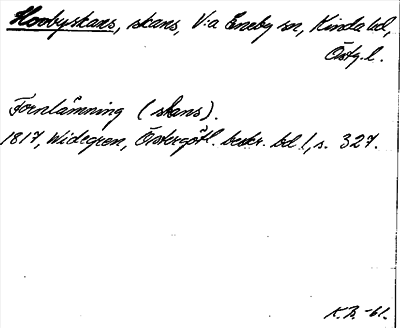 Hovbyskans, skans, V:a Eneby sn, Kinda hd,
Östg. l.
Fornlämning (skans).
1817, Widegren, Östergötl. beskr. bd 1, s. 327.
K.B. -61.